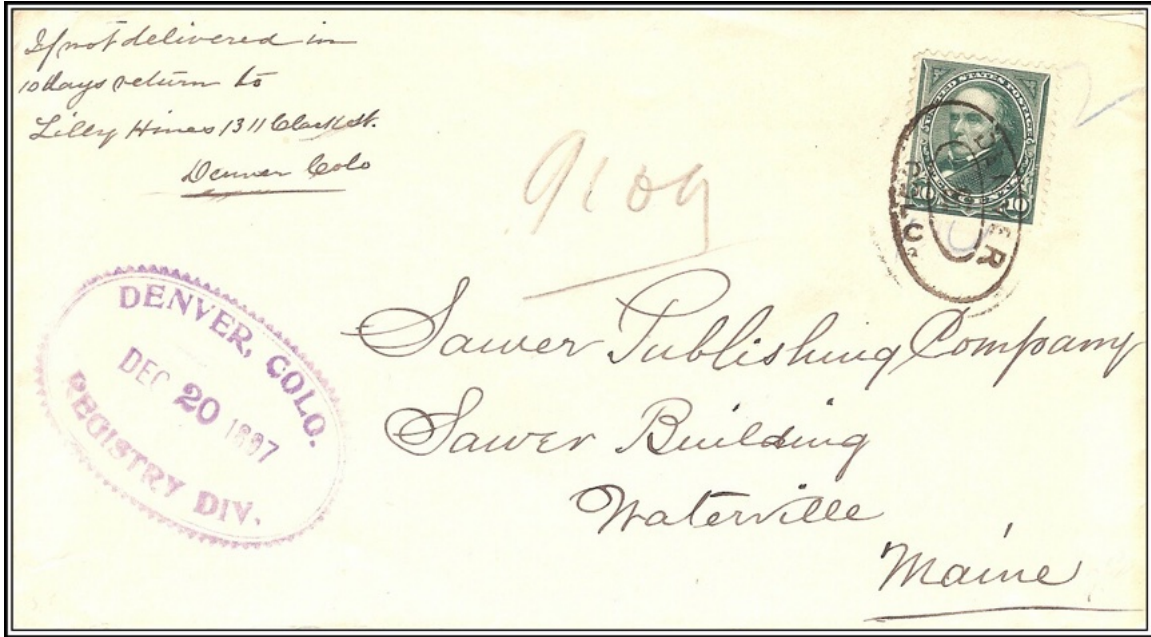 If not delivered in
10 days return to
Lilly Hines 1311 Clark St.
Denver Colo
UNITED STATES POSTAGE
10 10
DENVER
COLO.
9109
DENVER, COLO.
DEC 20 1897
REGISTRY DIV.
Sawer Publishing Company
Sawer Building
Waterville
Maine